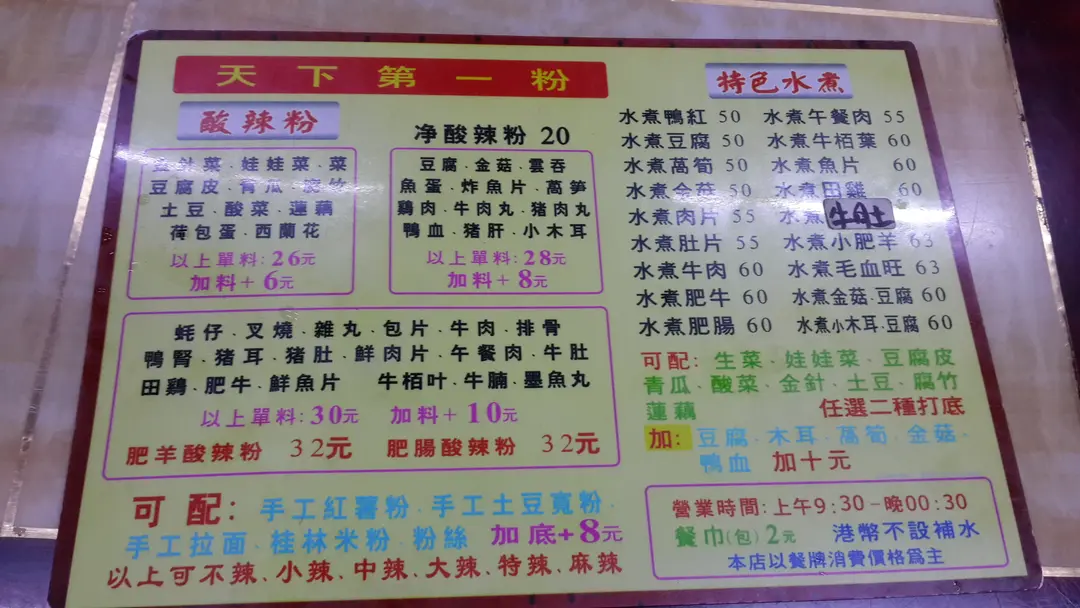 天下第一粉
酸辣粉
金針菜.娃娃菜.菜
豆腐皮.青瓜.腐竹
土豆.酸菜.蓮藕
荷包蛋.西蘭花
以上單料:26元
加料+6元
净酸辣粉 20
豆腐.金菇.雲吞
魚蛋.炸魚片.萵笋
鷄肉.牛肉丸.豬肉丸
鴨血.豬肝.小木耳
以上單料:28元
加料+8元
蚝仔.叉燒.雜丸.包片.牛肉.排骨
鴨腎.豬耳.豬肚.鮮肉片.午餐肉.牛肚
田鷄.肥牛.鮮魚片 牛栢叶.牛腩.墨魚丸
以上單料:30元 加料+10元
肥羊酸辣粉 32元 肥腸酸辣粉 32元
可配:手工紅薯粉.手工土豆寬粉.
手工拉面.桂林米粉.粉絲 加底+8元
以上可不辣、小辣、中辣、大辣、特辣、麻辣
特色水煮
水煮鴨紅 50 水煮午餐肉 55
水煮豆腐 50 水煮牛栢葉 60
水煮萵筍 50 水煮魚片 60
水煮金菇 50 水煮田雞 60
水煮肉片 55 水煮牛肚
水煮肚片 55 水煮小肥羊 63
水煮牛肉 60 水煮毛血旺 63
水煮肥牛 60 水煮金菇.豆腐 60
水煮肥腸 60 水煮小木耳.豆腐 60
可配:生菜.娃娃菜.豆腐皮
青瓜.酸菜.金針.土豆.腐竹
蓮藕 任選二種打底
加:豆腐.木耳.萵筍.金菇.
鴨血 加十元
營業時間:上午9:30-晚00:30
餐巾(包)2元 港幣不設補水
本店以餐牌消費價格爲主